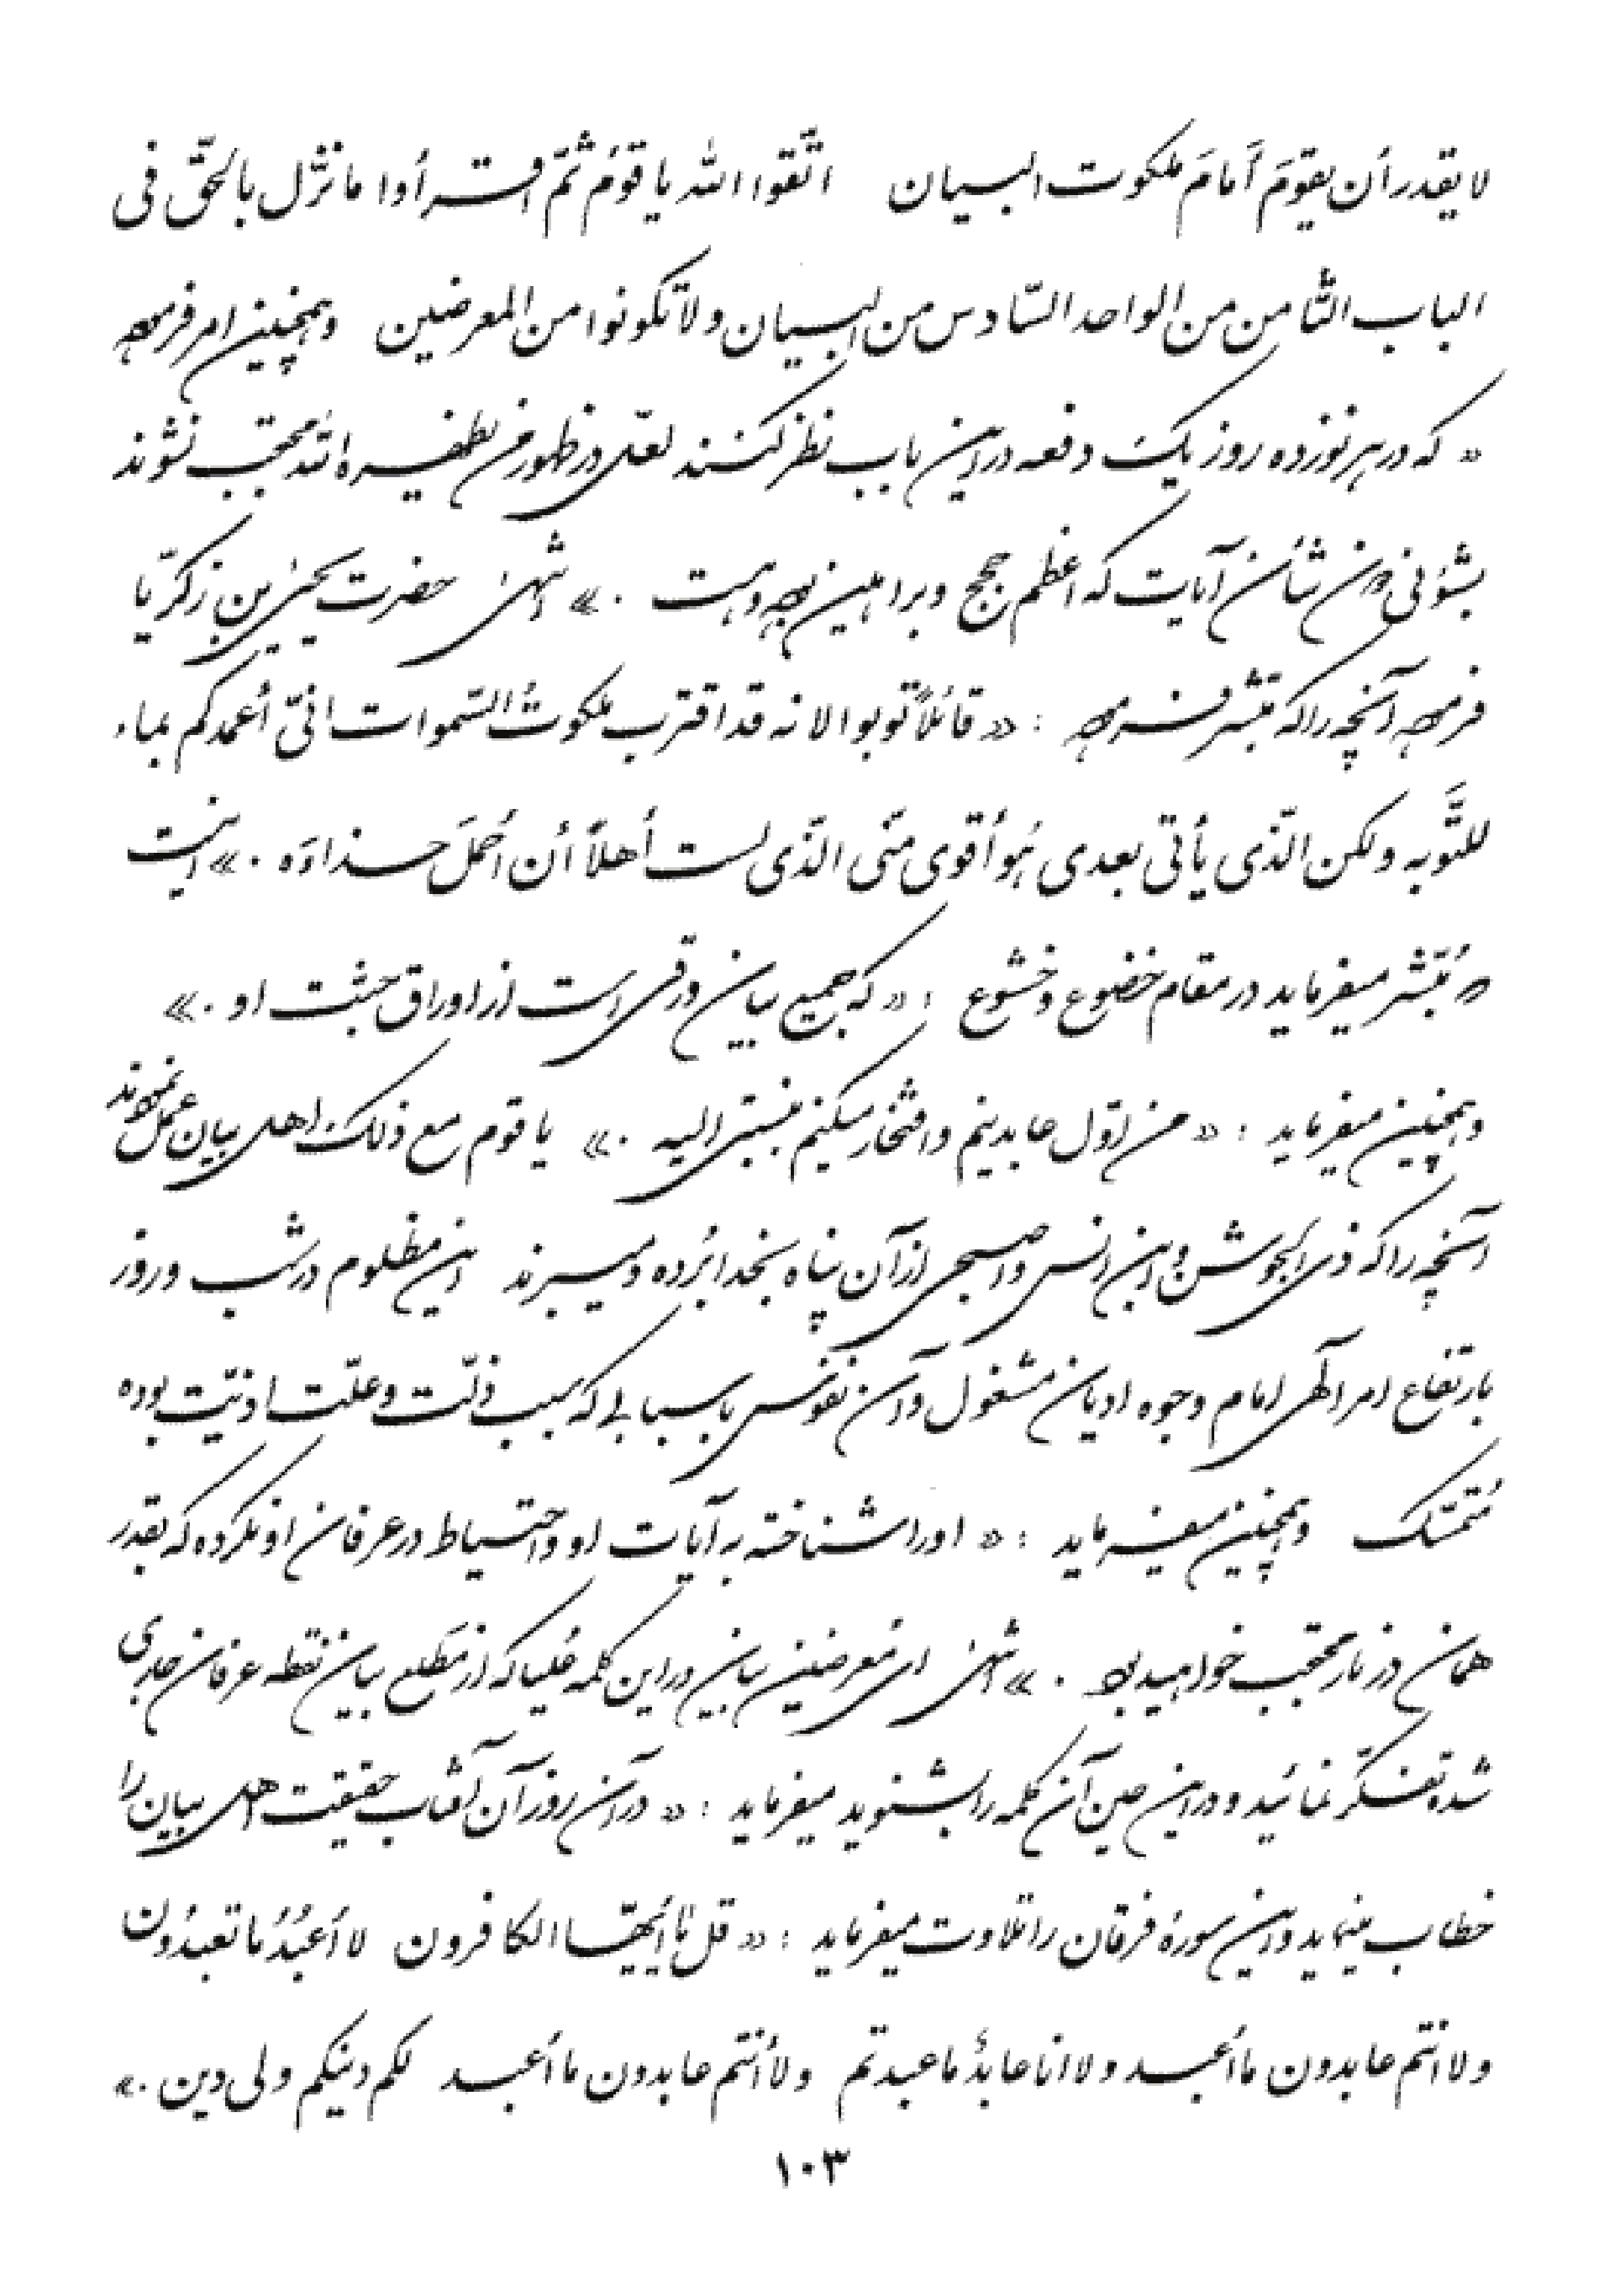 لا یقدر أن یقومَ أَمامَ ملکوت البیان   اتّقوا الله یا قومُ ثمّ اقرأوا ما نزّل بالحقّ فی
الباب الثّامن من الواحد السّادس من البیان و لا تکونوا من المعرضین   و همچنین امر فرموده
« که در هر نوزده روز یک دفعه در این باب نظر کنند لعلّ در ظهور من یظهره الله محتجب نشوند
بشؤنی دون شأن آیات که اعظم حجج و براهین بوده و هست . » انتهی   حضرت یحیی بن زکریّا
فرموده آنچه را که مبشّر فرموده : « قائلاً توبوا لانه قد اقترب ملکوتُ السّموات انّی أعمدکم بماء
للتَّوبه و لکن الّذی یأتی بعدی هُو أقوی منّی الّذی لست أهلاً أن أحملَ حذاءَه . » اینست
که مُبشّر میفرماید در مقام خضوع و خشوع : « که جمیع بیان ورقی است از اوراق جنّت او . »
و همچنین میفرماید : « من اوّل عابدینم و افتخار میکنم بنسبتی الیه . » یا قوم مع ذلک اهل بیان عمل نمودند
آنچه را که ذی الجوشن و ابن انس و اصبحی از آن پناه بخدا بُرده و میبرند   این مظلوم در شب و روز
بارتفاع امر الهی امام وجوه ادیان مشغول و آن نفوس باسبابی که سبب ذلّت و علّت اذیّت بوده
مُتمسّک   و همچنین میفرماید : « او را شناخته به آیات او و احتیاط در عرفان او نکرده که بقدر
همان در نار محتجب خواهید بود . » انتهی ای مُعرضین بیان در این کلمه عُلیا که از مَطلع بیان نقطه عرفان جاری
شده تفکّر نمائید و در این حین آن کلمه را بشنوید میفرماید : « در آن روز آن آفتاب حقیقت اهل بیان را
خطاب مینماید و این سورهٔ فرقان را تلاوت میفرماید : « قل یا أیّها الکافرون   لا أعبُدُ ما تعبدُون
و لا انتم عابدون ما أعبد و لا انا عابدٌ ما عبدتم   و لا أنتم عابدون ما أعبد   لکم دینکم و لی دین . »
١٠٣